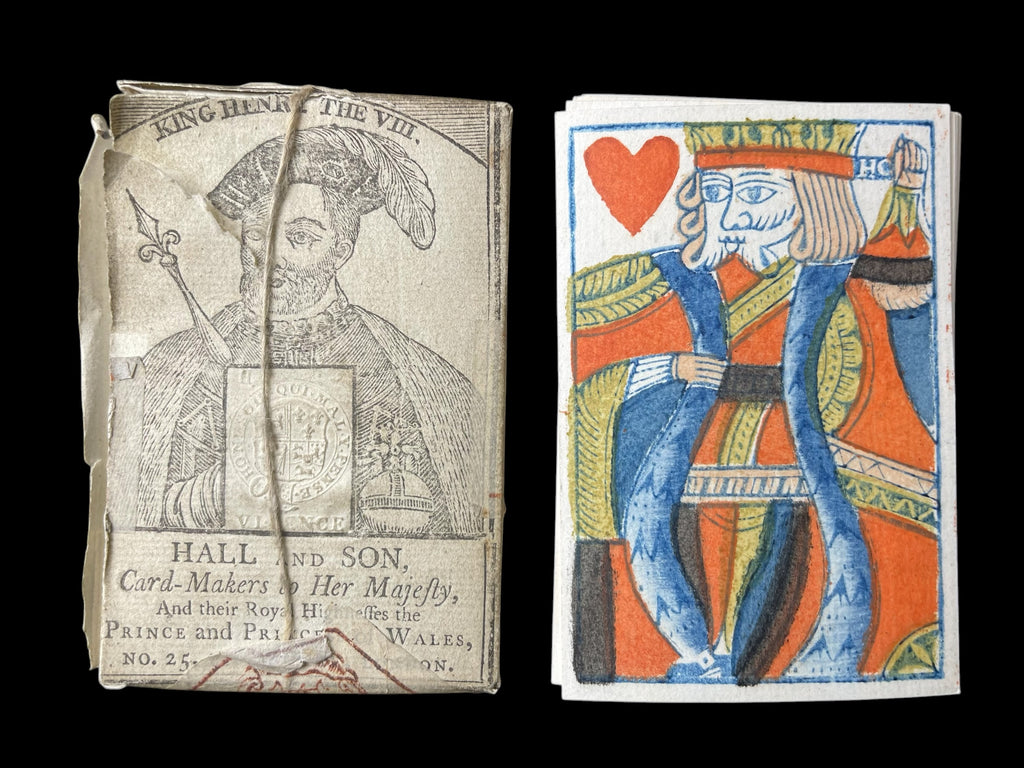 KING HENRY THE VIII.
HONI SOIT QUI MAL Y PENSE
VI ANCE
HALL AND SON,
Card-Makers to Her Majeſty,
And their Royal Highneſſes the
PRINCE and PRINCE WALES,
NO. 25. ON.